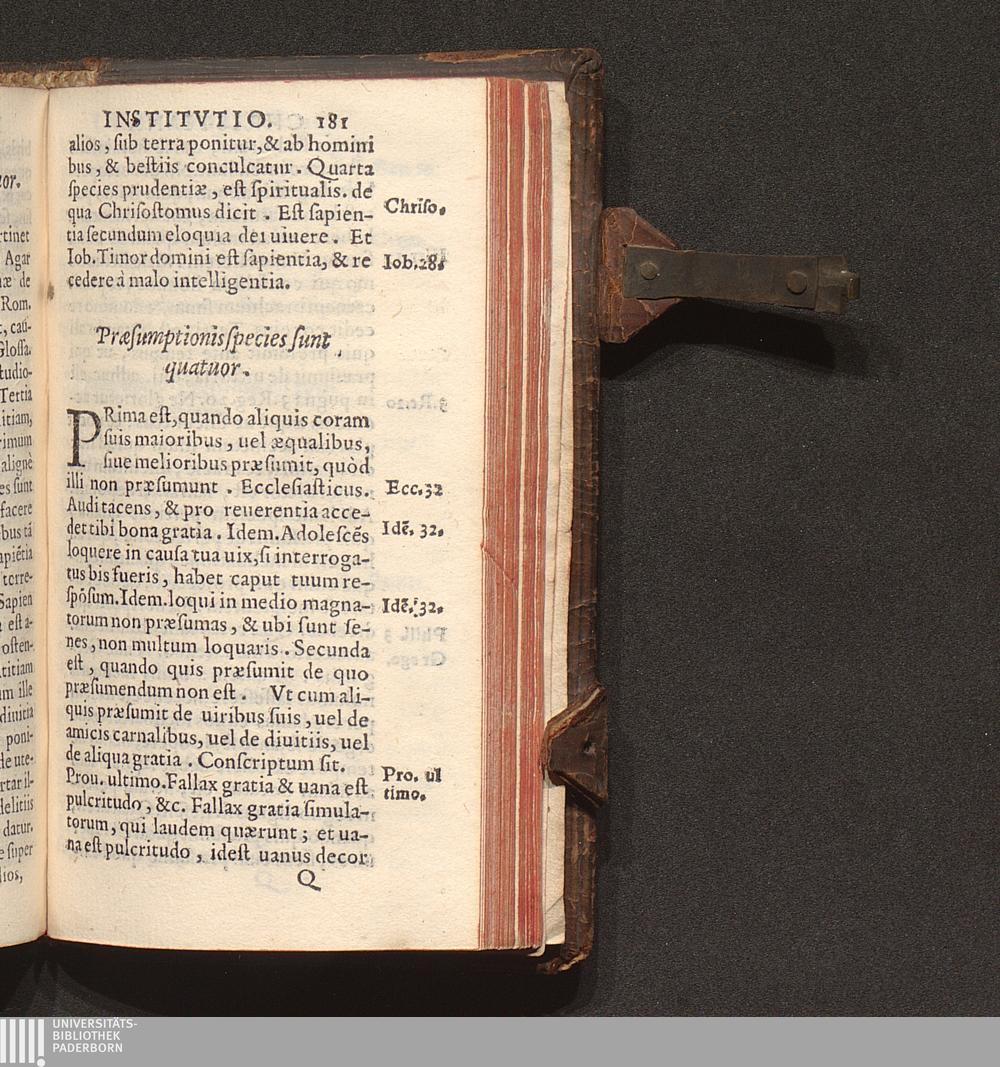 INSTITVTIO. 181
alios, ſub terra ponitur, & ab homini
bus, & beſtiis conculcatur. Quarta
ſpecies prudentiæ, eſt ſpiritualis. de
qua Chriſoſtomus dicit. Eſt ſapien-
tia ſecundum eloquia dei uiuere. Et
Iob. Timor domini eſt ſapientia, & re
cedere à malo intelligentia.
Chriſo.
Iob.28.
Præſumptionis ſpecies ſunt
quatuor.
PRima eſt, quando aliquis coram
ſuis maioribus, uel æqualibus,
ſiue melioribus præſumit, quòd
illi non præſumunt. Eccleſiaſticus.
Audi tacens, & pro reuerentia acce-
det tibi bona gratia. Idem. Adoleſcẽs
loquere in cauſa tua uix, ſi interroga-
tus bis fueris, habet caput tuum re-
ſpõſum. Idem. loqui in medio magna-
torum non præſumas, & ubi ſunt ſe-
nes, non multum loquaris. Secunda
eſt, quando quis præſumit de quo
præſumendum non eſt. Vt cum ali-
quis præſumit de uiribus ſuis, uel de
amicis carnalibus, uel de diuitiis, uel
de aliqua gratia. Conſcriptum ſit.
Prou. ultimo. Fallax gratia & uana eſt
pulcritudo, &c. Fallax gratia ſimula-
torum, qui laudem quærunt; et ua-
na eſt pulcritudo, ideſt uanus decor
Ecc.32
Idẽ. 32.
Idẽ. 32.
Pro. ul
timo.
Q
or.
rtinet
Agar
næ de
Rom.
Gloſſa.
tudio-
Tertia
itiam,
rimum
alignè
es ſunt
facere
bus tã
apiẽtia
terre-
Sapien
eſt a-
oſten-
ſtitiam
um ille
diuitia
poni-
de ute-
rtar il-
delitiis
datur.
e ſuper
lios,
UNIVERSITÄTS-
BIBLIOTHEK
PADERBORN